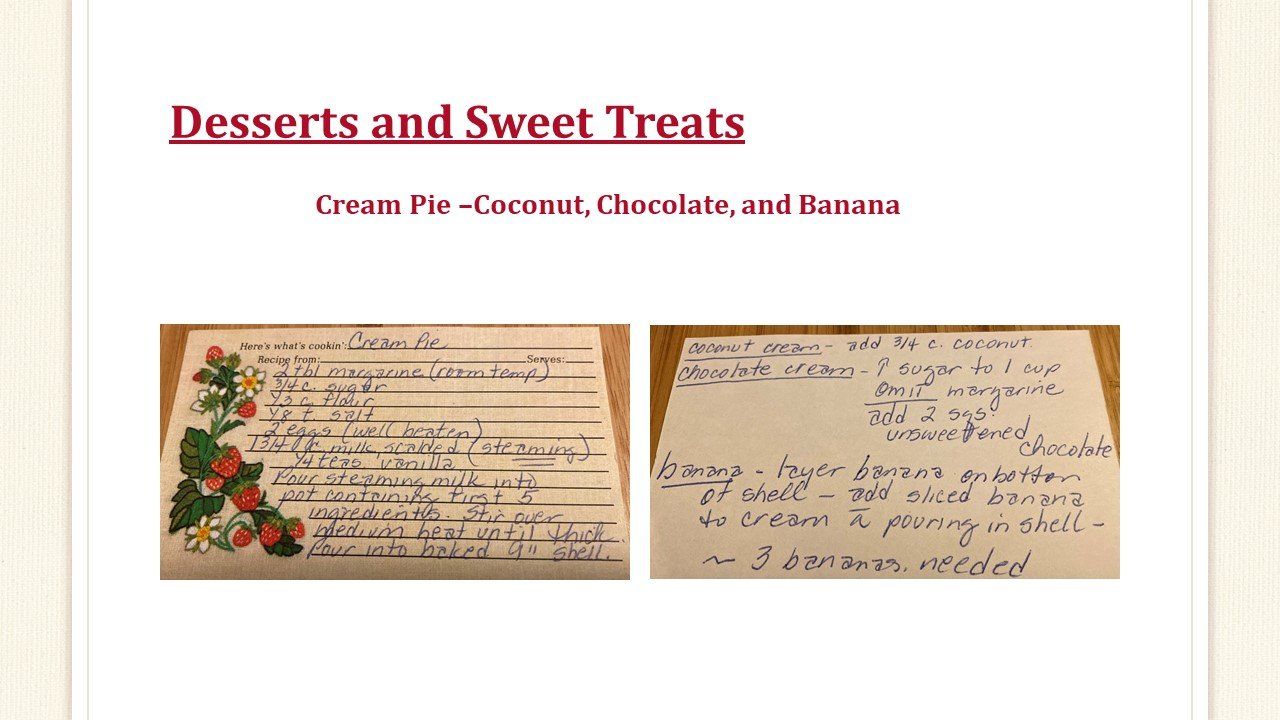 Desserts and Sweet Treats
Cream Pie –Coconut, Chocolate, and Banana
Here's what's cookin': Cream Pie
Recipe from: Serves:
2 tbl margarine (room temp)
3/4 c. sugar
1/3 c. flour
1/8 t salt
2 eggs (well beaten)
1 3/4 c milk scalded (steaming)
1/4 teas vanilla
Pour steaming milk into
pot containing first 5
ingredients. Stir over
medium heat until thick.
Pour into baked 9" shell.
coconut cream - add 3/4 c. coconut.
chocolate cream - ↑ sugar to 1 cup
omit margarine
add 2 sqs.
unsweetened
chocolate
banana - layer banana on bottom
of shell - add sliced banana
to cream a̅ pouring in shell -
~ 3 bananas needed